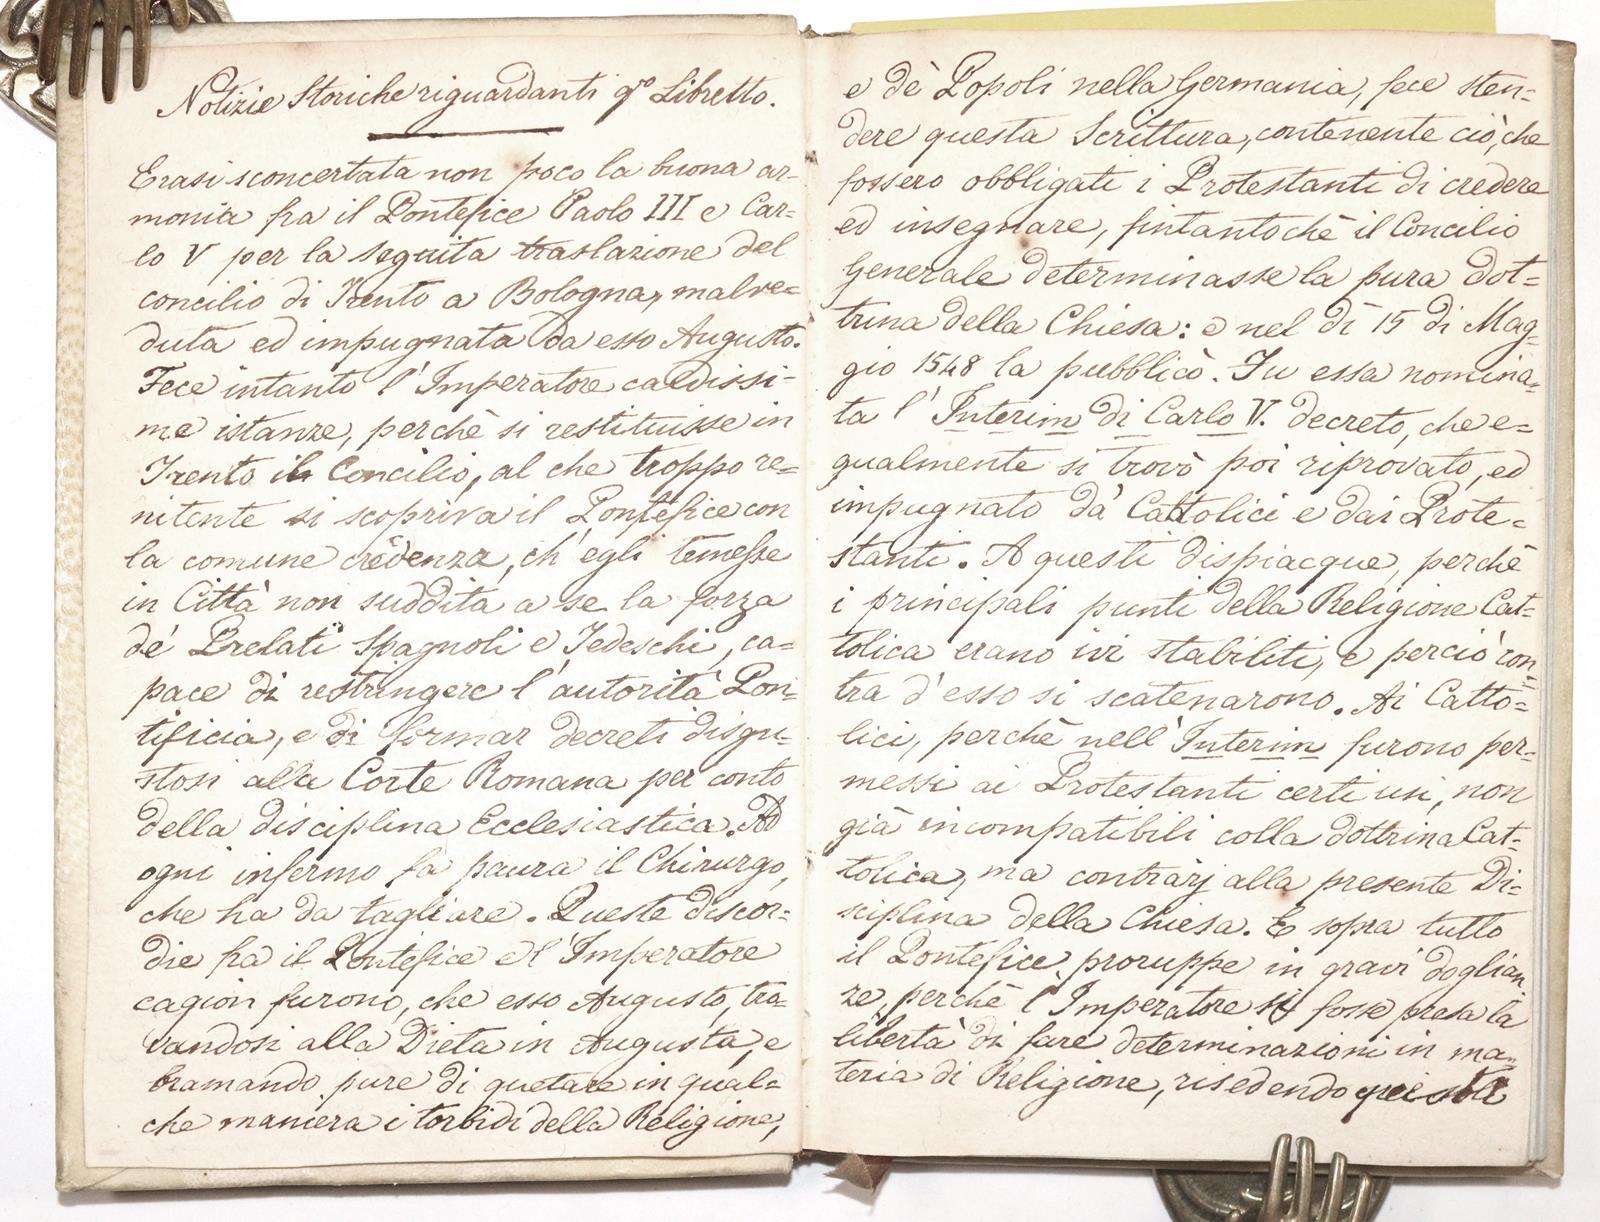 Notizie Storiche riguardanti q.to Libretto.
Erasi sconcertata non poco la buona ar-
monia fra il Pontefice Paolo III e Car=
lo V per la seguita traslazione del
concilio di Trento a Bologna, malve=
duta ed impugnata da esso Augusto.
Fece intanto l'Imperatore caldissi-
me istanze, perchè si restituisse in
Trento il Concilio, al che troppo re=
nitente si scopriva il Pontefice con
la comune credenza, ch'egli temesse
in Città non suddita a se la forza
de' Prelati Spagnoli e Tedeschi, ca=
pace di restringere l'autorità Pon-
tificia, e di formar decreti disgu-
stosi alla Corte Romana per conto
della disciplina Ecclesiastica. Ad
ogni infermo fa paura il Chirurgo,
che ha da tagliare. Queste discor=
die fra il Pontefice e l'Imperatore
cagion furono, che esso Augusto, tro-
vandosi alla Dieta in Augusta, e
bramando pure di quetare in qual=
che maniera i torbidi della Religione,
e dè Popoli nella Germania, fece sten=
dere questa Scrittura, contenente ciò, che
fossero obbligati i Protestanti di credere
ed insegnare, fintantochè il Concilio
Generale determinasse la pura dot=
trina della Chiesa: e nel dì 15 di Mag-
gio 1548 la pubblicò. Fu essa nomina-
ta l'Interim di Carlo V. decreto, che e=
gualmente si trovò poi riprovato, ed
impugnato dà Cattolici e dai Prote=
stanti. A questi dispiacque, perchè
i principali punti della Religione Cat=
tolica erano ivi stabiliti, e perciò con
tra d'esso si scatenarono. Ai Catto=
lici, perchè nell'Interim furono per-
messi ai Protestanti certi usi, non
già incompatibili colla dottrina Cat-
tolica, ma contrarj alla presente Di=
sciplina della Chiesa. E sopra tutto
il Pontefice proruppe in gravi doglian
ze, perchè l'Imperatore si fosse presa la
libertà di fare determinazioni in ma=
teria di Religione, risedendo